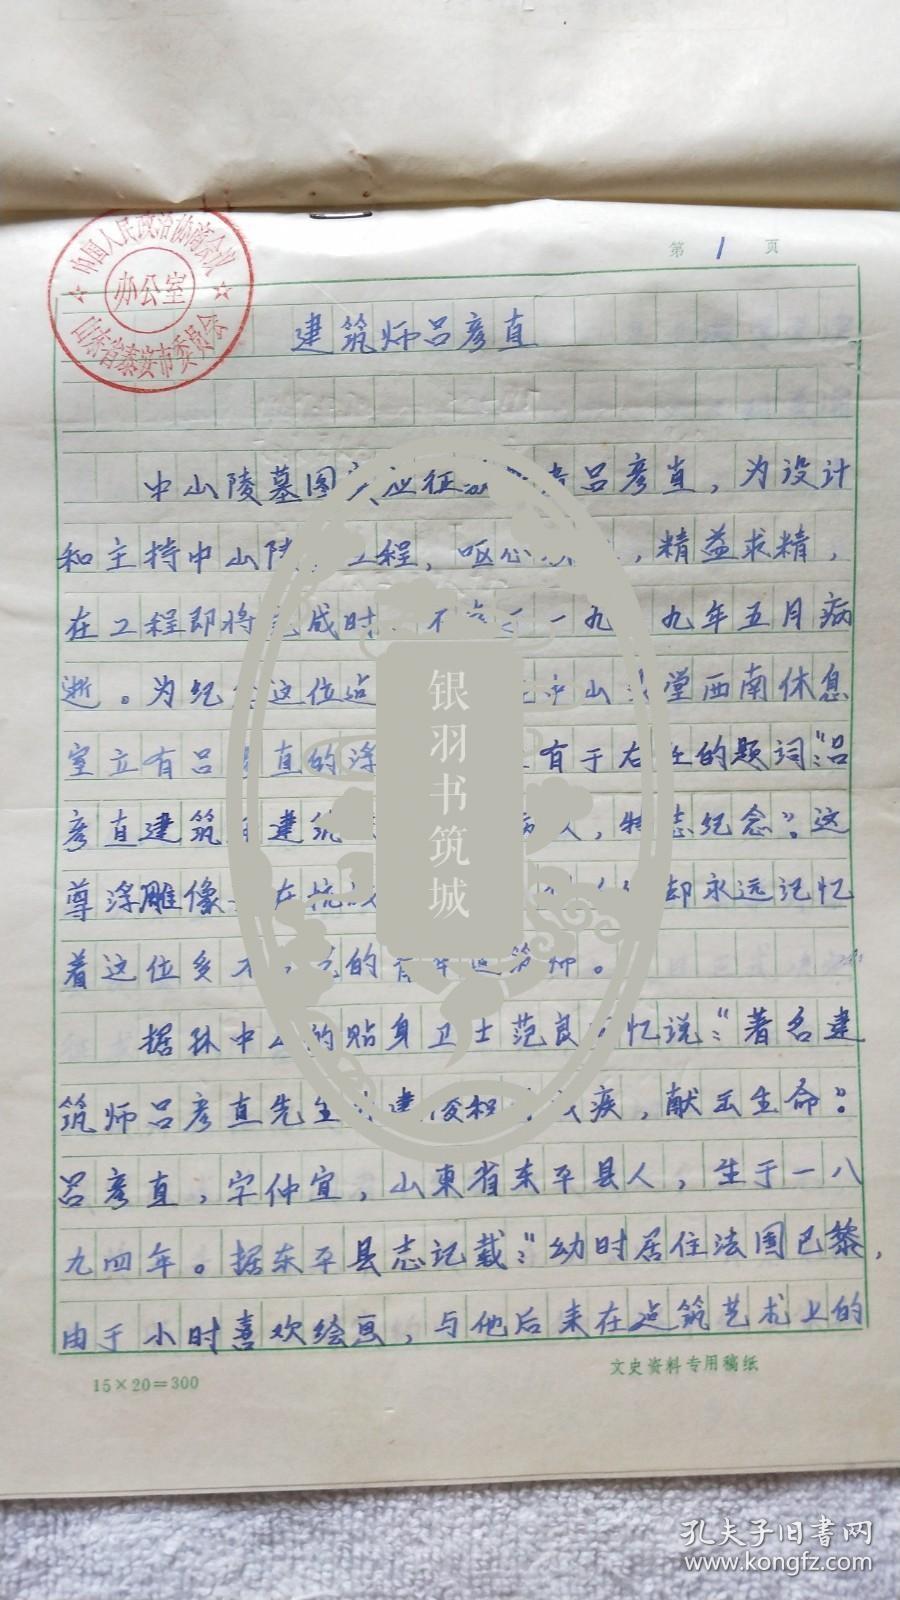 中国人民政治协商会议
办公室
山东省泰安市委员会
第 1 页
建筑师吕彦直
中山陵墓图 应征 吕彦直，为设计
和主持中山陵 工程，呕心 ，精益求精，
在工程即将完成时 不 一九 九年五月病
逝。为纪念这位 中山 堂西南休息
室立有吕彦直的浮 有于右任的题词："吕
彦直建筑 建筑 病 人，特志纪念"。这
尊浮雕像 在抗 却永远记忆
着这位多才 的青年建筑师。
据孙中山的贴身卫士范良 忆说："著名建
筑师吕彦直先生 建 疾，献出生命"。
吕彦直，字仲宜，山東省东平县人，生于一八
九四年。据东平县志记载："幼时居住法国巴黎，
由于小时喜欢绘画，与他后来在建筑艺术上的
15×20=300
文史资料专用稿纸
银羽书筑城
孔夫子旧书网
www.kongfz.com